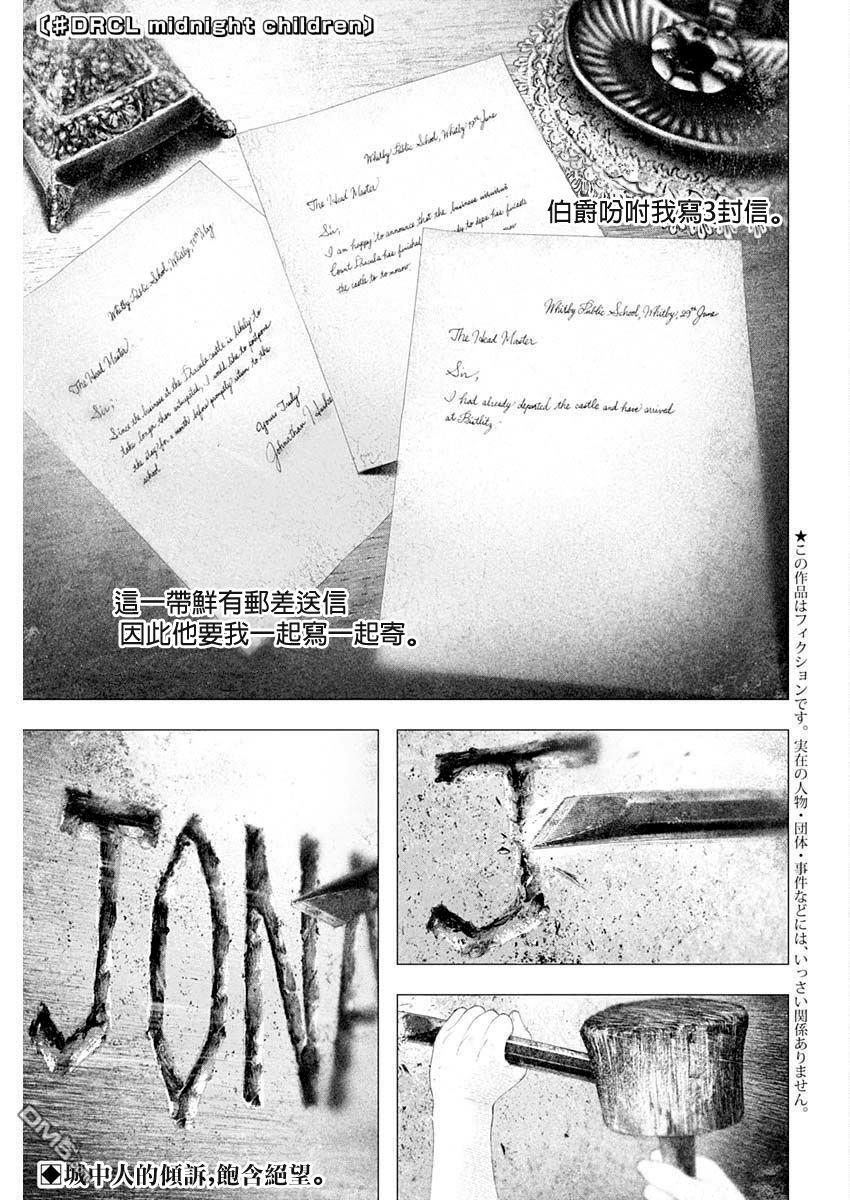 〔#DRCL midnight children〕
伯爵吩咐我寫3封信。
Whitby Public School, Whitby, 19th June
The Head Master
Sir,
I am happy to announce that the business
Count Dracula has finished
the castle
Whitby Public School, Whitby,
The Head Master
Sir,
Since the business at the Dracula castle is likely to
take longer than anticipated, I would like to postpone
the stay for a month before promptly return to the
school.
Yours Truly
Johnathan
Whitby Public School, Whitby, 29th June
The Head Master
Sir,
I had already departed the castle and have arrived
at
這一帶鮮有郵差送信
因此他要我一起寫一起寄。
★この作品はフィクションです。実在の人物・団体・事件などには、いっさい関係ありません。
J
JONA
◆城中人的傾訴,飽含絕望。